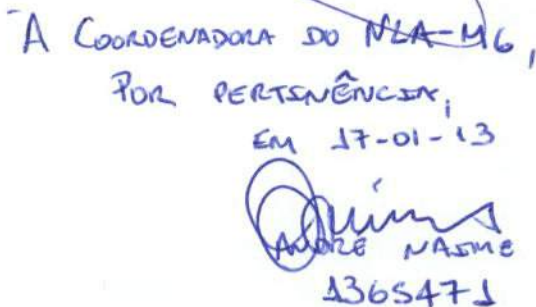 À COORDENADORA DO NLA-MG,
POR PERTINÊNCIA,
EM 17-01-13
ANDRE NAIME
1365471